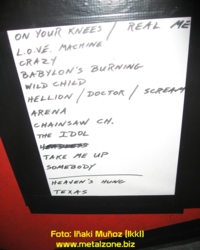 ON YOUR KNEES / REAL ME
L.O.VE. MACHINE
CRAZY
BABYLON'S BURNING
WILD CHILD
HELLION / DOCTOR / SCREAM
ARENA
CHAINSAW CH.
THE IDOL
TAKE ME UP
SOMEBODY
HEAVEN'S HUNG
TEXAS
Foto: Iñaki Muñoz (Ikki)
www.metalzone.biz